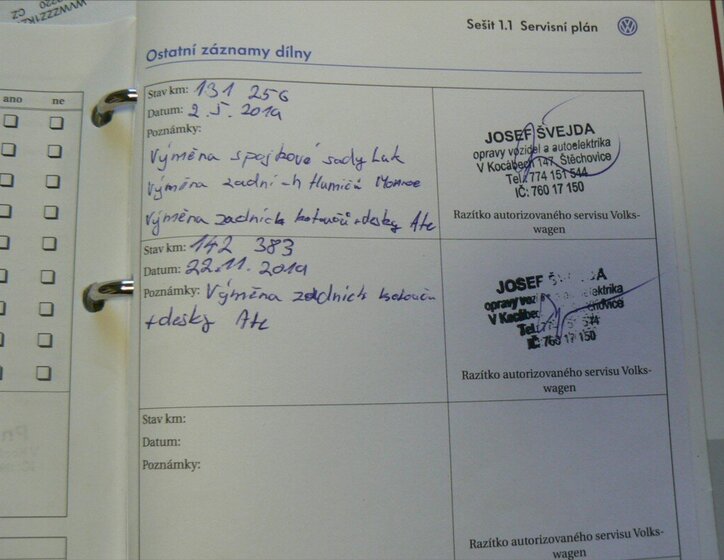 CZ
Sešit 1.1 Servisní plán
Ostatní záznamy dílny
ano ne
Stav km: 131 256
Datum: 2.5.2019
Poznámky:
Výměna spojkové sady Luk
Výměna zadních tlumičů Monroe
Výměna zadních kotoučů + desky Ate
JOSEF ŠVEJDA
opravy vozidel a autoelektrika
V Kocábech 147, Štěchovice
Tel.: 774 151 544
IČ: 760 17 150
Razítko autorizovaného servisu Volks-
wagen
Stav km: 142 383
Datum: 22.11.2019
Poznámky: Výměna zadních kotoučů
+ desky Ate
JOSEF
opravy autoelektrika
V Kocábech Štěchovice
IČ: 760 17 150
Razítko autorizovaného servisu Volks-
wagen
Stav km:
Datum:
Poznámky:
Razítko autorizovaného servisu Volks-
wagen